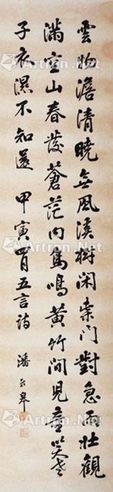 雲物澹清曉無風溪樹閑柴門對急雨壯觀
滿空山春發蒼茫內鳥鳴黃竹間兒童笑老
子衣濕不知還 甲寅 月五言詩 潘齡皋
Artron.Net